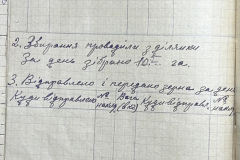 2. Збирання проводили з ділянки
за день зібрано 10,- га.
3. Відправлено і передано зерна за день
Куди відправлено № накл. Вага Куди відправ. № накл.